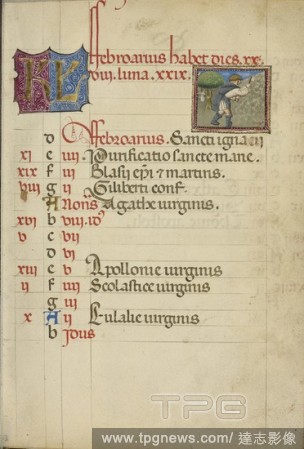 KL
ffebroarius habet dies. xx
viii. luna. xxix.
d ffebroarius. Sancti ignacii
xi e iiii Purificatio sancte marie.
xix f iii Blasii epi & martiris.
viii g ii Giliberti conf.
A Nons Agathe virginis.
xvi b viii. id
v c vii
d vi
xiii e v Apollonie virginis
ii f iiii Scolastice virginis
g iii
x A ii Eulalie virginis
b idus
TPG
www.tpgnews.com/達志影像